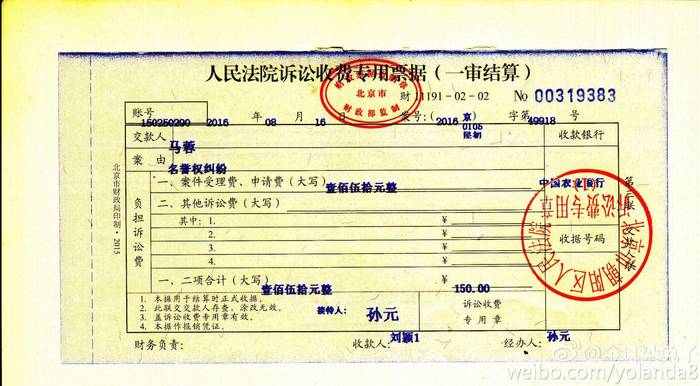 人民法院诉讼收费专用票据（一审结算）
北京市
财政部监制
财11191-02-02
№ 00319383
账号 150250290 2016 年 08 月 16 日 案号：(2016) 京0105民初 字第 49918 号
交款人 马蓉
收款银行
案由 名誉权纠纷
一、案件受理费、申请费（大写） 壹佰伍拾元整
中国农业银行
负担诉讼费
二、其他诉讼费（大写）
其中：1. ¥
2. ¥
收据号码
3. ¥
4. ¥
5. ¥
一、二项合计（大写） 壹佰伍拾元整 ¥ 150.00
1. 本据用于结算时正式收据。
2. 此联交交款人存查，涂改无效。
3. 盖诉讼收费专用章有效。
4. 本据作报销凭证。
接待人： 孙元
诉讼收费
专用章
财务负责： 收款人： 刘颖1 经办人： 孙元
北京市财政局印制·2015
北京市朝阳区人民法院
诉讼费专用章
weibo.com/yolanda8